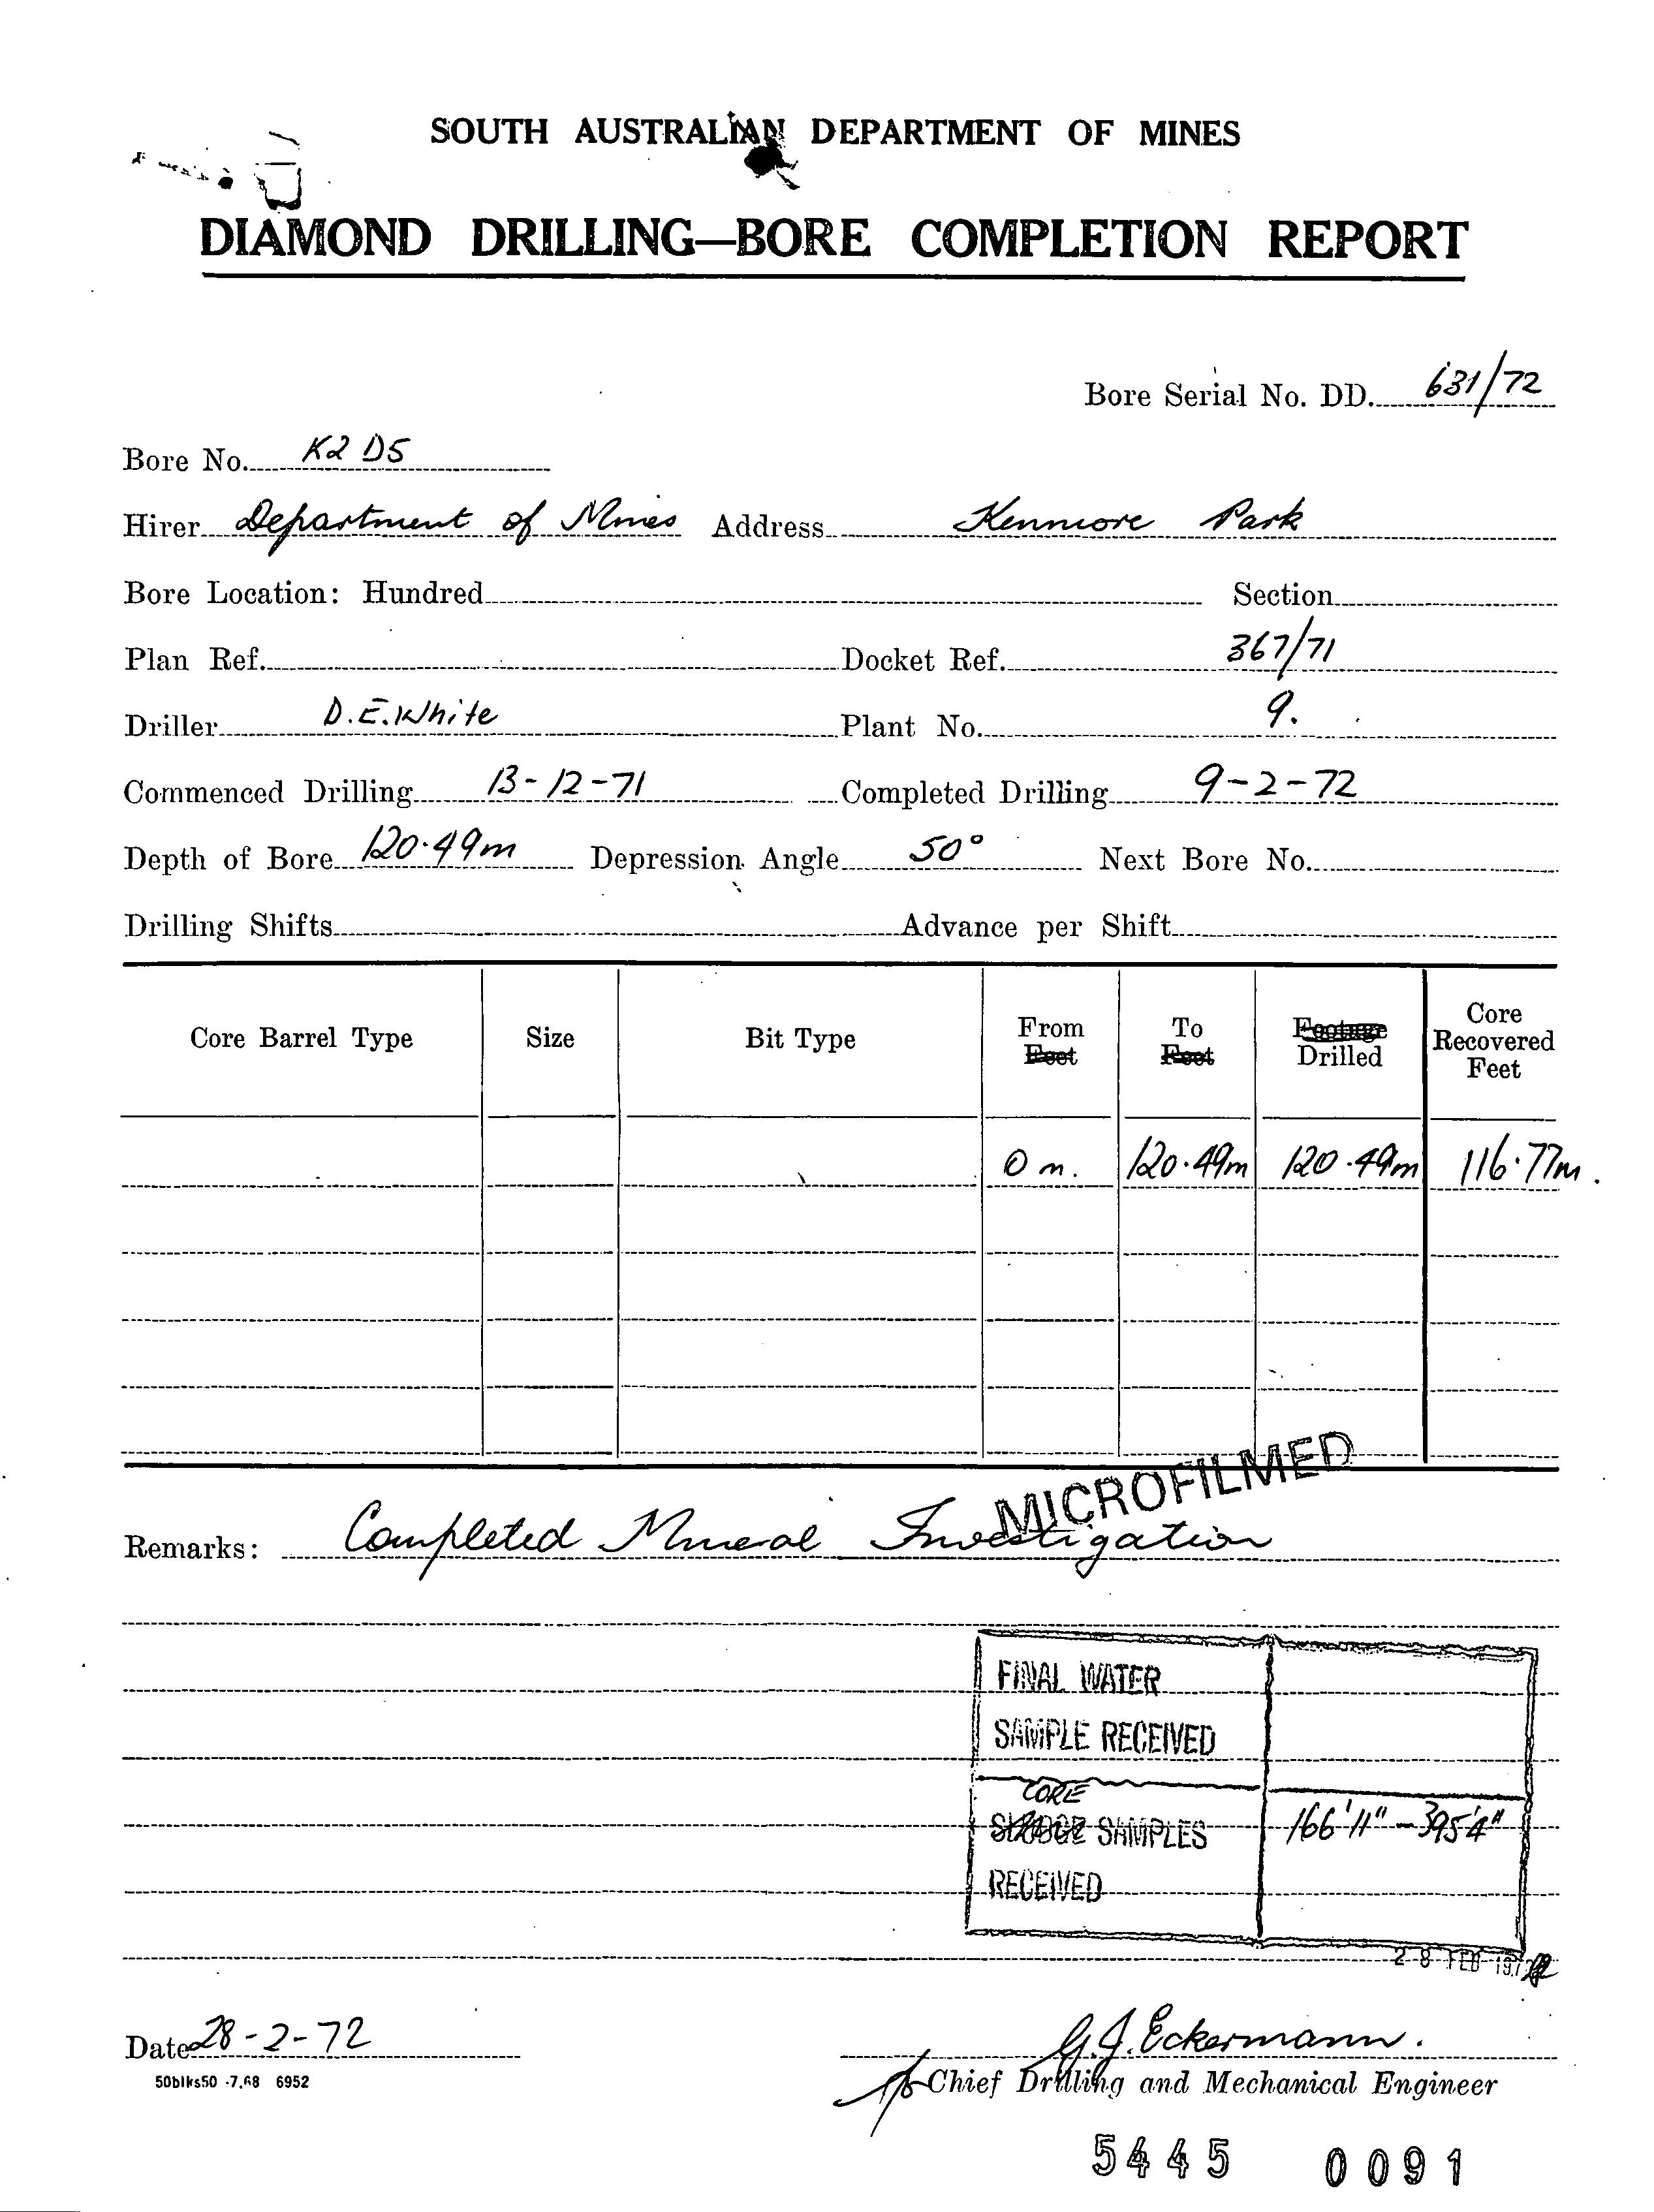 SOUTH AUSTRALIAN DEPARTMENT OF MINES
DIAMOND DRILLING—BORE COMPLETION REPORT
Bore Serial No. DD. 631/72
Bore No. K2 D5
Hirer Department of Mines Address Kenmore Park
Bore Location: Hundred Section
Plan Ref. Docket Ref. 367/71
Driller D.E. White Plant No. 9.
Commenced Drilling 13-12-71 Completed Drilling 9-2-72
Depth of Bore 120.49m Depression Angle 50° Next Bore No.
Drilling Shifts Advance per Shift
Core Barrel Type Size Bit Type From Feet To Feet Footage Drilled Core Recovered Feet
0 m. 120.49m 120.49m 116.77m.
MICROFILMED
Remarks: Completed Mineral Investigation
FINAL WATER
SAMPLE RECEIVED
CORE
SLUDGE SAMPLES 166'11" - 395'4"
RECEIVED
28 FEB 1972
Date 28-2-72 G.J. Eckermann.
50blks50 -7.68 6952
Chief Drilling and Mechanical Engineer
5445 0091